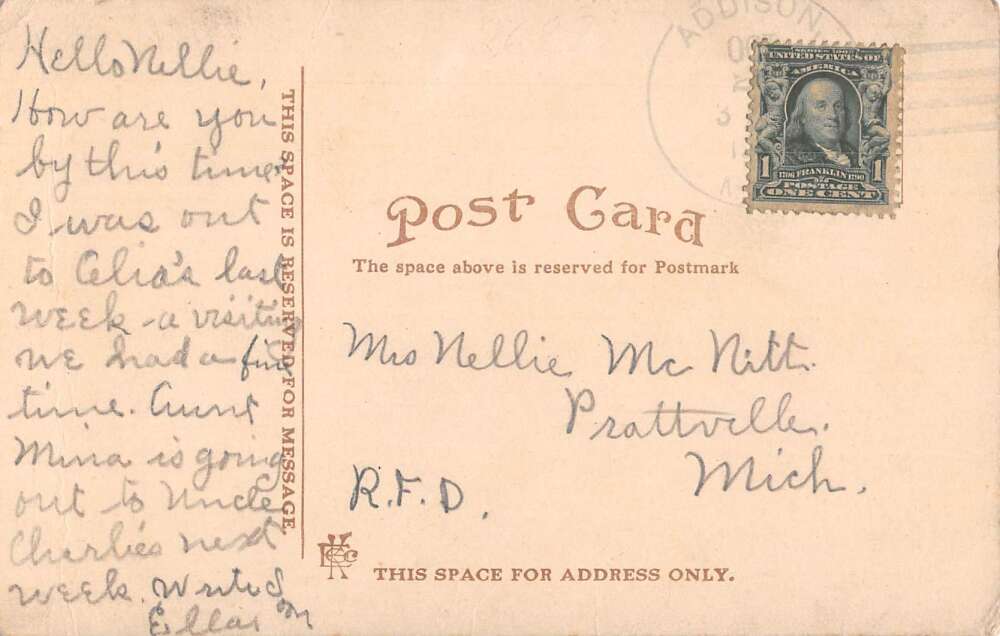 Hello Nellie,
How are you
by this time
I was out
to Celia's last
week - a visiting
we had a fine
time. Aunt
Mina is going
out to Uncle
Charlie's next
week. Write
Ella
THIS SPACE IS RESERVED FOR MESSAGE.
ADDISON,
SERIES 1902
UNITED STATES OF
AMERICA
1 1
1706 FRANKLIN 1790
POSTAGE
ONE CENT
Post Card
The space above is reserved for Postmark
Mrs Nellie Mc Nitt.
Prattville.
Mich.
R.F.D.
THIS SPACE FOR ADDRESS ONLY.